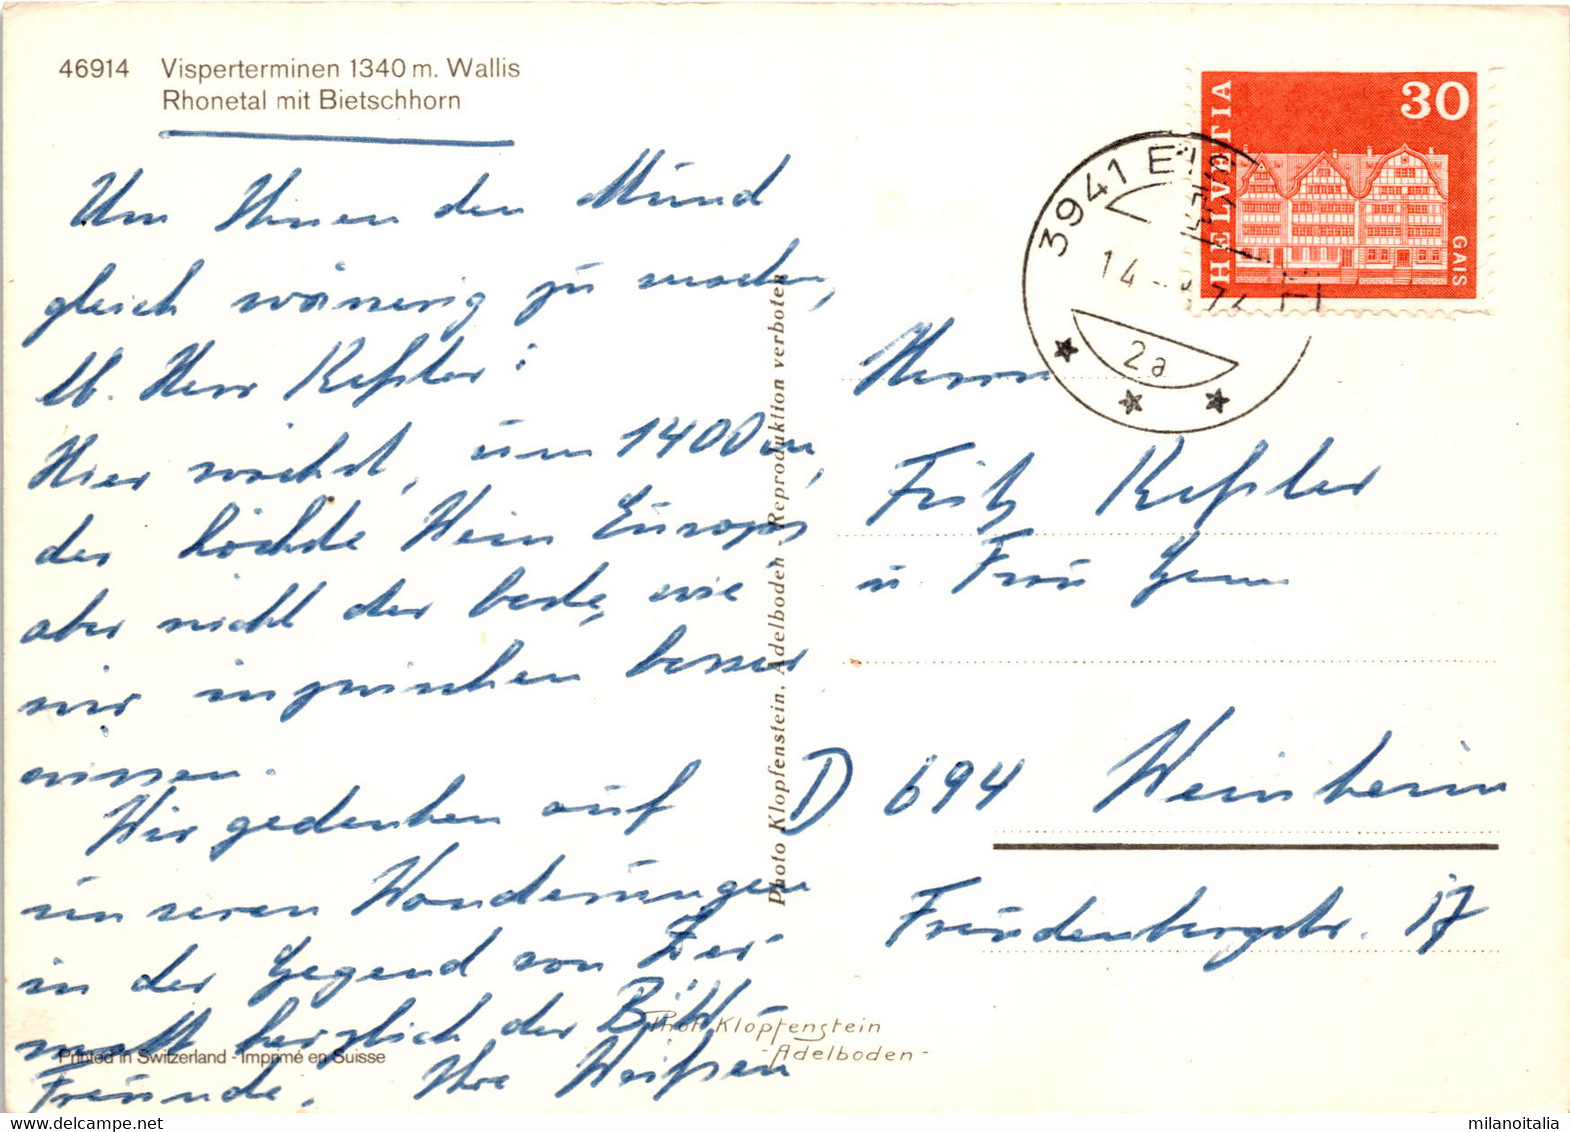 46914 Visperterminen 1340 m. Wallis
Rhonetal mit Bietschhorn
Um Ihnen den Mund
gleich wässerig zu machen,
lb. Herr Keßler:
Hier wächst, um 1400 m,
der höchste Wein Europas
aber nicht der beste, wie
wir inzwischen besser
wissen.
Wir gedenken auf
unseren Wanderungen
in der Gegend von Zer-
matt herzlich der
Freunde. Ihre
Photo Klopfenstein, Adelboden - Reproduktion verboten
Phot. Klopfenstein
- Adelboden -
Printed in Switzerland - Imprimé en Suisse
HELVETIA
30
GAIS
3941
14
2a
Herrn
Fritz Keßler
u. Frau Gem
D 694 Weinheim
Freudenbergstr. 17
milanoitalia